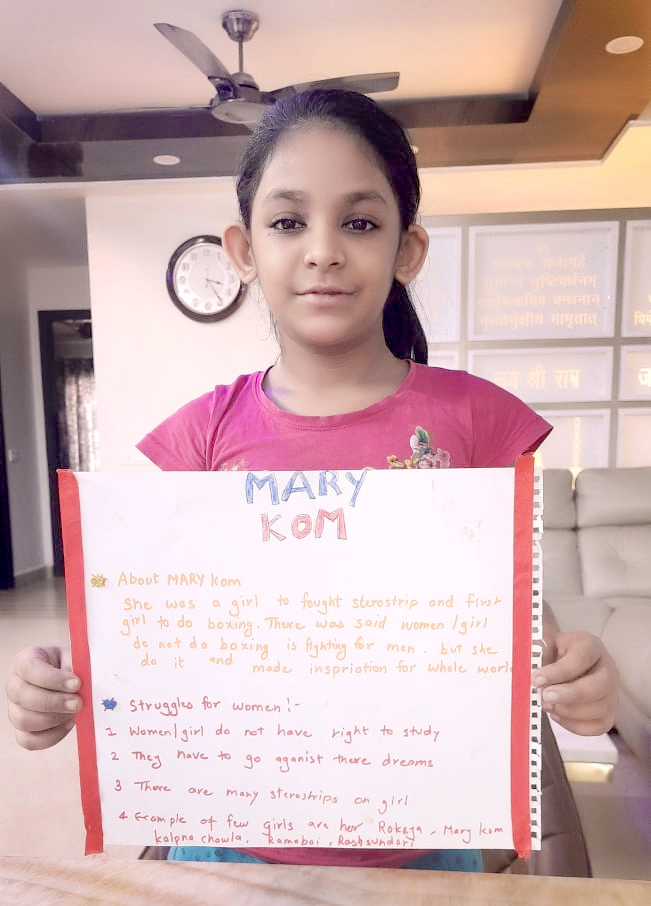 ॐ
त्र्यम्बकं यजामहे
सुगन्धिं पुष्टिवर्धनम्
उर्वारुकमिव बन्धनान्
मृत्योर्मुक्षीय मामृतात्
जय श्री राम
MARY
KOM
About MARY kom
She was a girl to fought sterostrip and first
girl to do boxing. There was said women/girl
do not do boxing is fighting for men. but she
do it and made inspriation for whole worl
Struggles for women !-
1 Women/girl do not have right to study
2 They have to go aganist there dreams
3 There are many sterostrips on girl
4 Example of few girls are her Rokeya, Mary kom
kalpna chowla, Ramabai, Rashsundari